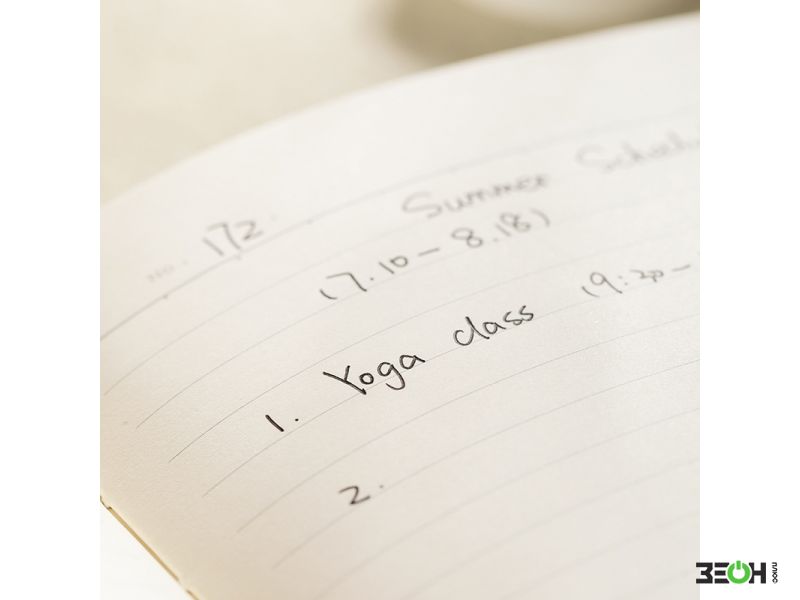 No. 172
Summer
(7.10 - 8.18)
1. Yoga class (9:30 -
2.
ЗЕОН